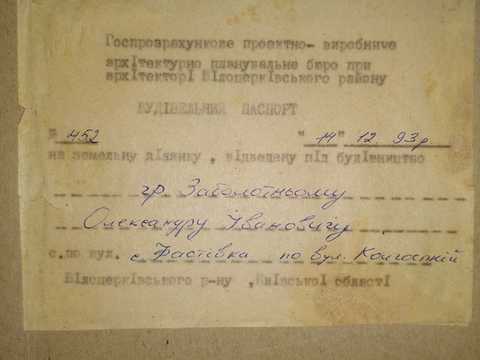 Госпрозрахункове проектно- виробниче
архітектурно планувальне бюро при
архітекторі Білоцерківського району
БУДІВЕЛЬНИЙ ПАСПОРТ
№ 452 "14" 12 93р
на земельну ділянку , відведену під будівництво
гр. Заболотньому
Олександру Івановичу
с.по вул. с. Фастівка по вул. Колгоспній
Білоцерківського р-ну ,Київської області